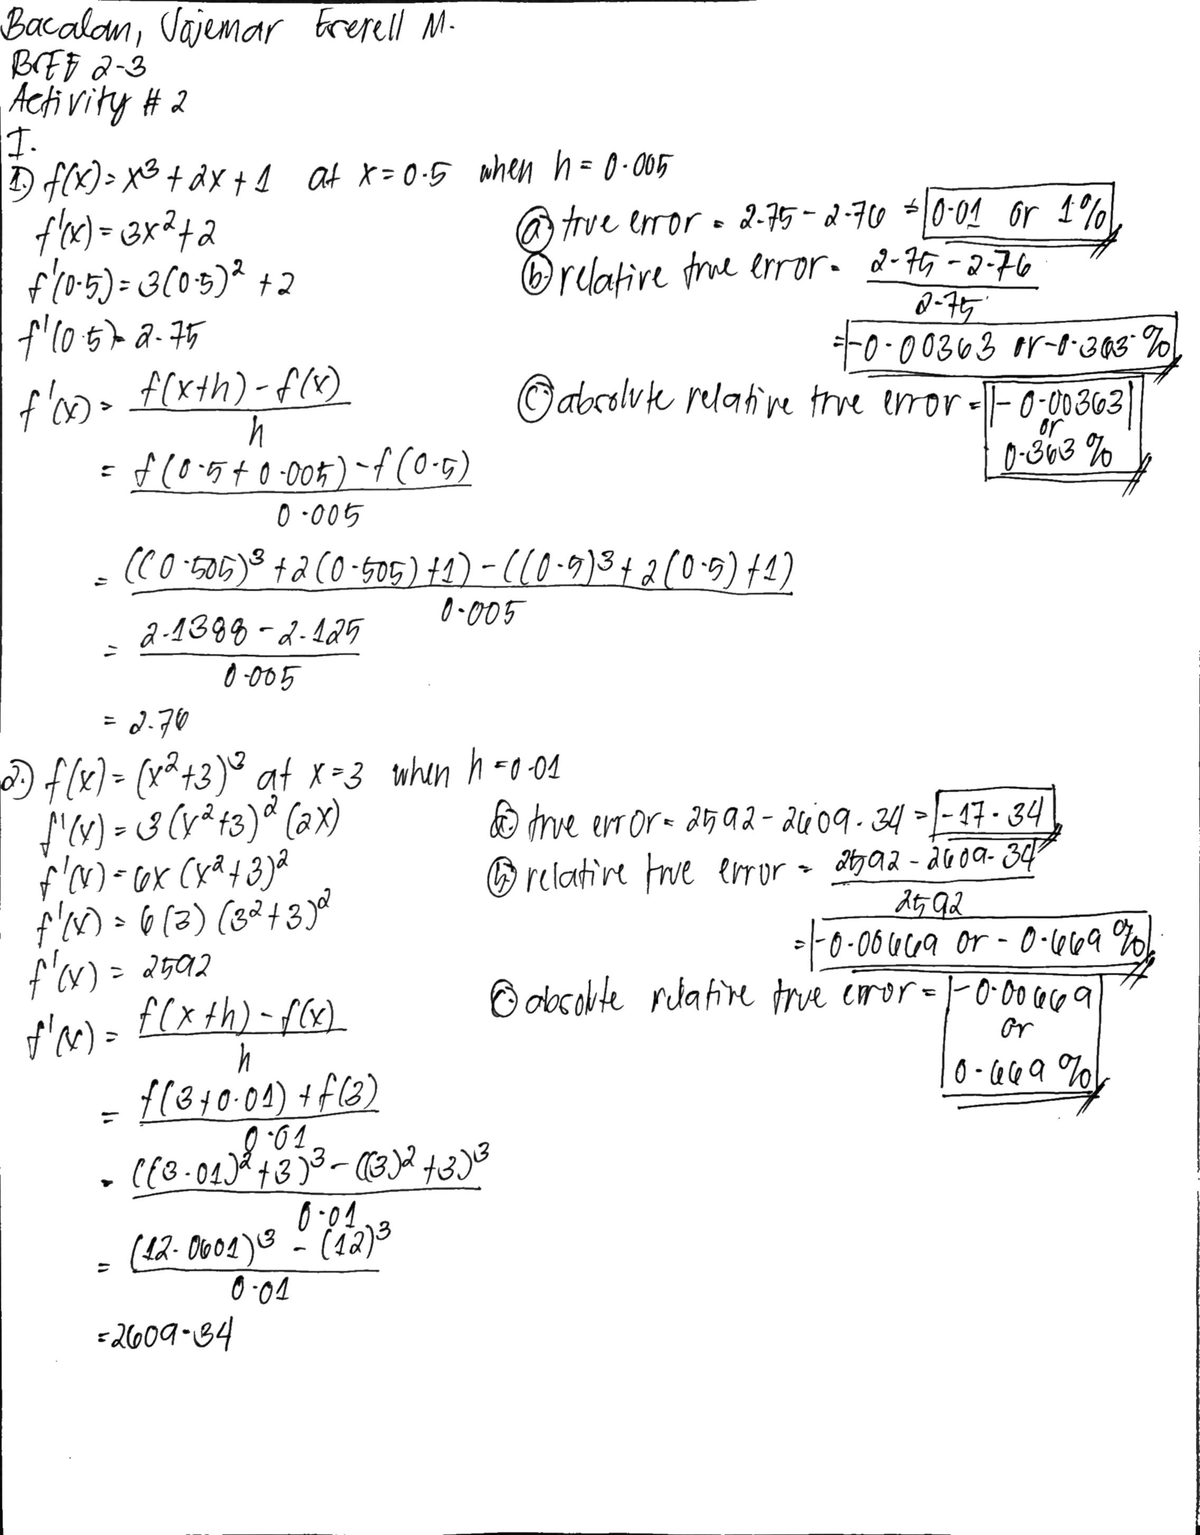 Bacalan, Jojemar Everell M.
BSEE 2-3
Activity # 2
I.
1.) f(x) = x³ + 2x + 1 at x = 0.5 when h = 0.005
f'(x) = 3x² + 2
f'(0.5) = 3(0.5)² + 2
f'(0.5) = 2.75
f'(x) = f(x+h) - f(x)
h
= f(0.5 + 0.005) - f(0.5)
0.005
= ((0.505)³ + 2(0.505) + 1) - ((0.5)³ + 2(0.5) + 1)
0.005
= 2.1388 - 2.125
0.005
= 2.76
a. true error = 2.75 - 2.76 = 0.01 or 1%
b. relative true error = 2.75 - 2.76
2.75
= -0.00363 or -0.363%
c. absolute relative true error = |-0.00363|
or
0.363%
2.) f(x) = (x²+3)³ at x = 3 when h = 0.01
f'(x) = 3(x²+3)² (2x)
f'(x) = 6x (x²+3)²
f'(x) = 6(3) (3²+3)²
f'(x) = 2592
f'(x) = f(x+h) - f(x)
h
= f(3+0.01) + f(3)
0.01
= ((3.01)² + 3)³ - ((3)² + 3)³
0.01
= (12.0601)³ - (12)³
0.01
= 2609.34
a. true error = 2592 - 2609.34 = -17.34
b. relative true error = 2592 - 2609.34
2592
= -0.00669 or -0.669%
c. absolute relative true error = |-0.00669|
or
0.669%